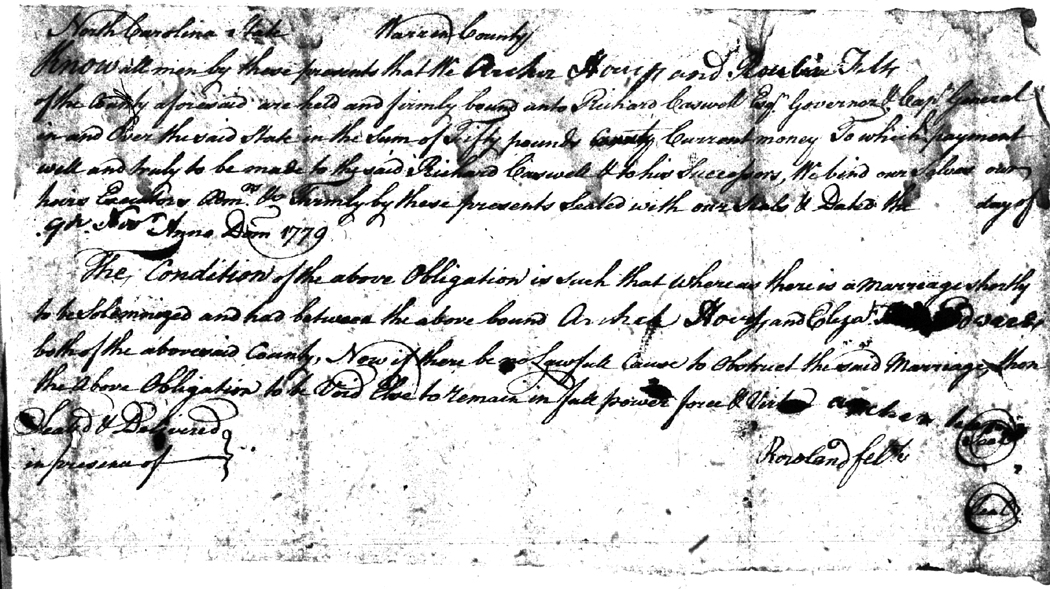 North Carolina State Warren County
Know all men by these presents that We Archer and Felts
of the County aforesaid are held and firmly bound unto Richard Caswell Esqr. Governor & Capt. General
in and Over the said State in the Sum of Fifty pounds Current money To which payment
well and truly to be made to the said Richard Caswell & to his Successors, We bind our Selves our
heirs Executors Adm.rs &c Firmly by these presents Sealed with our Seals & Dated the day of
9th. Anno Dom 1779
The Condition of the above Obligation is such that Whereas there is a Marriage shortly
to be Solemnized and had between the above bound Archer and Eliza.
both of the abovesaid County, Now if there be no Lawfull Cause to Obstruct the said Marriage, then
the Above Obligation to be Void Else to remain in full power force & Virtue
Sealed & Delivered Archer Seal
in presence of Rowland felts
Seal